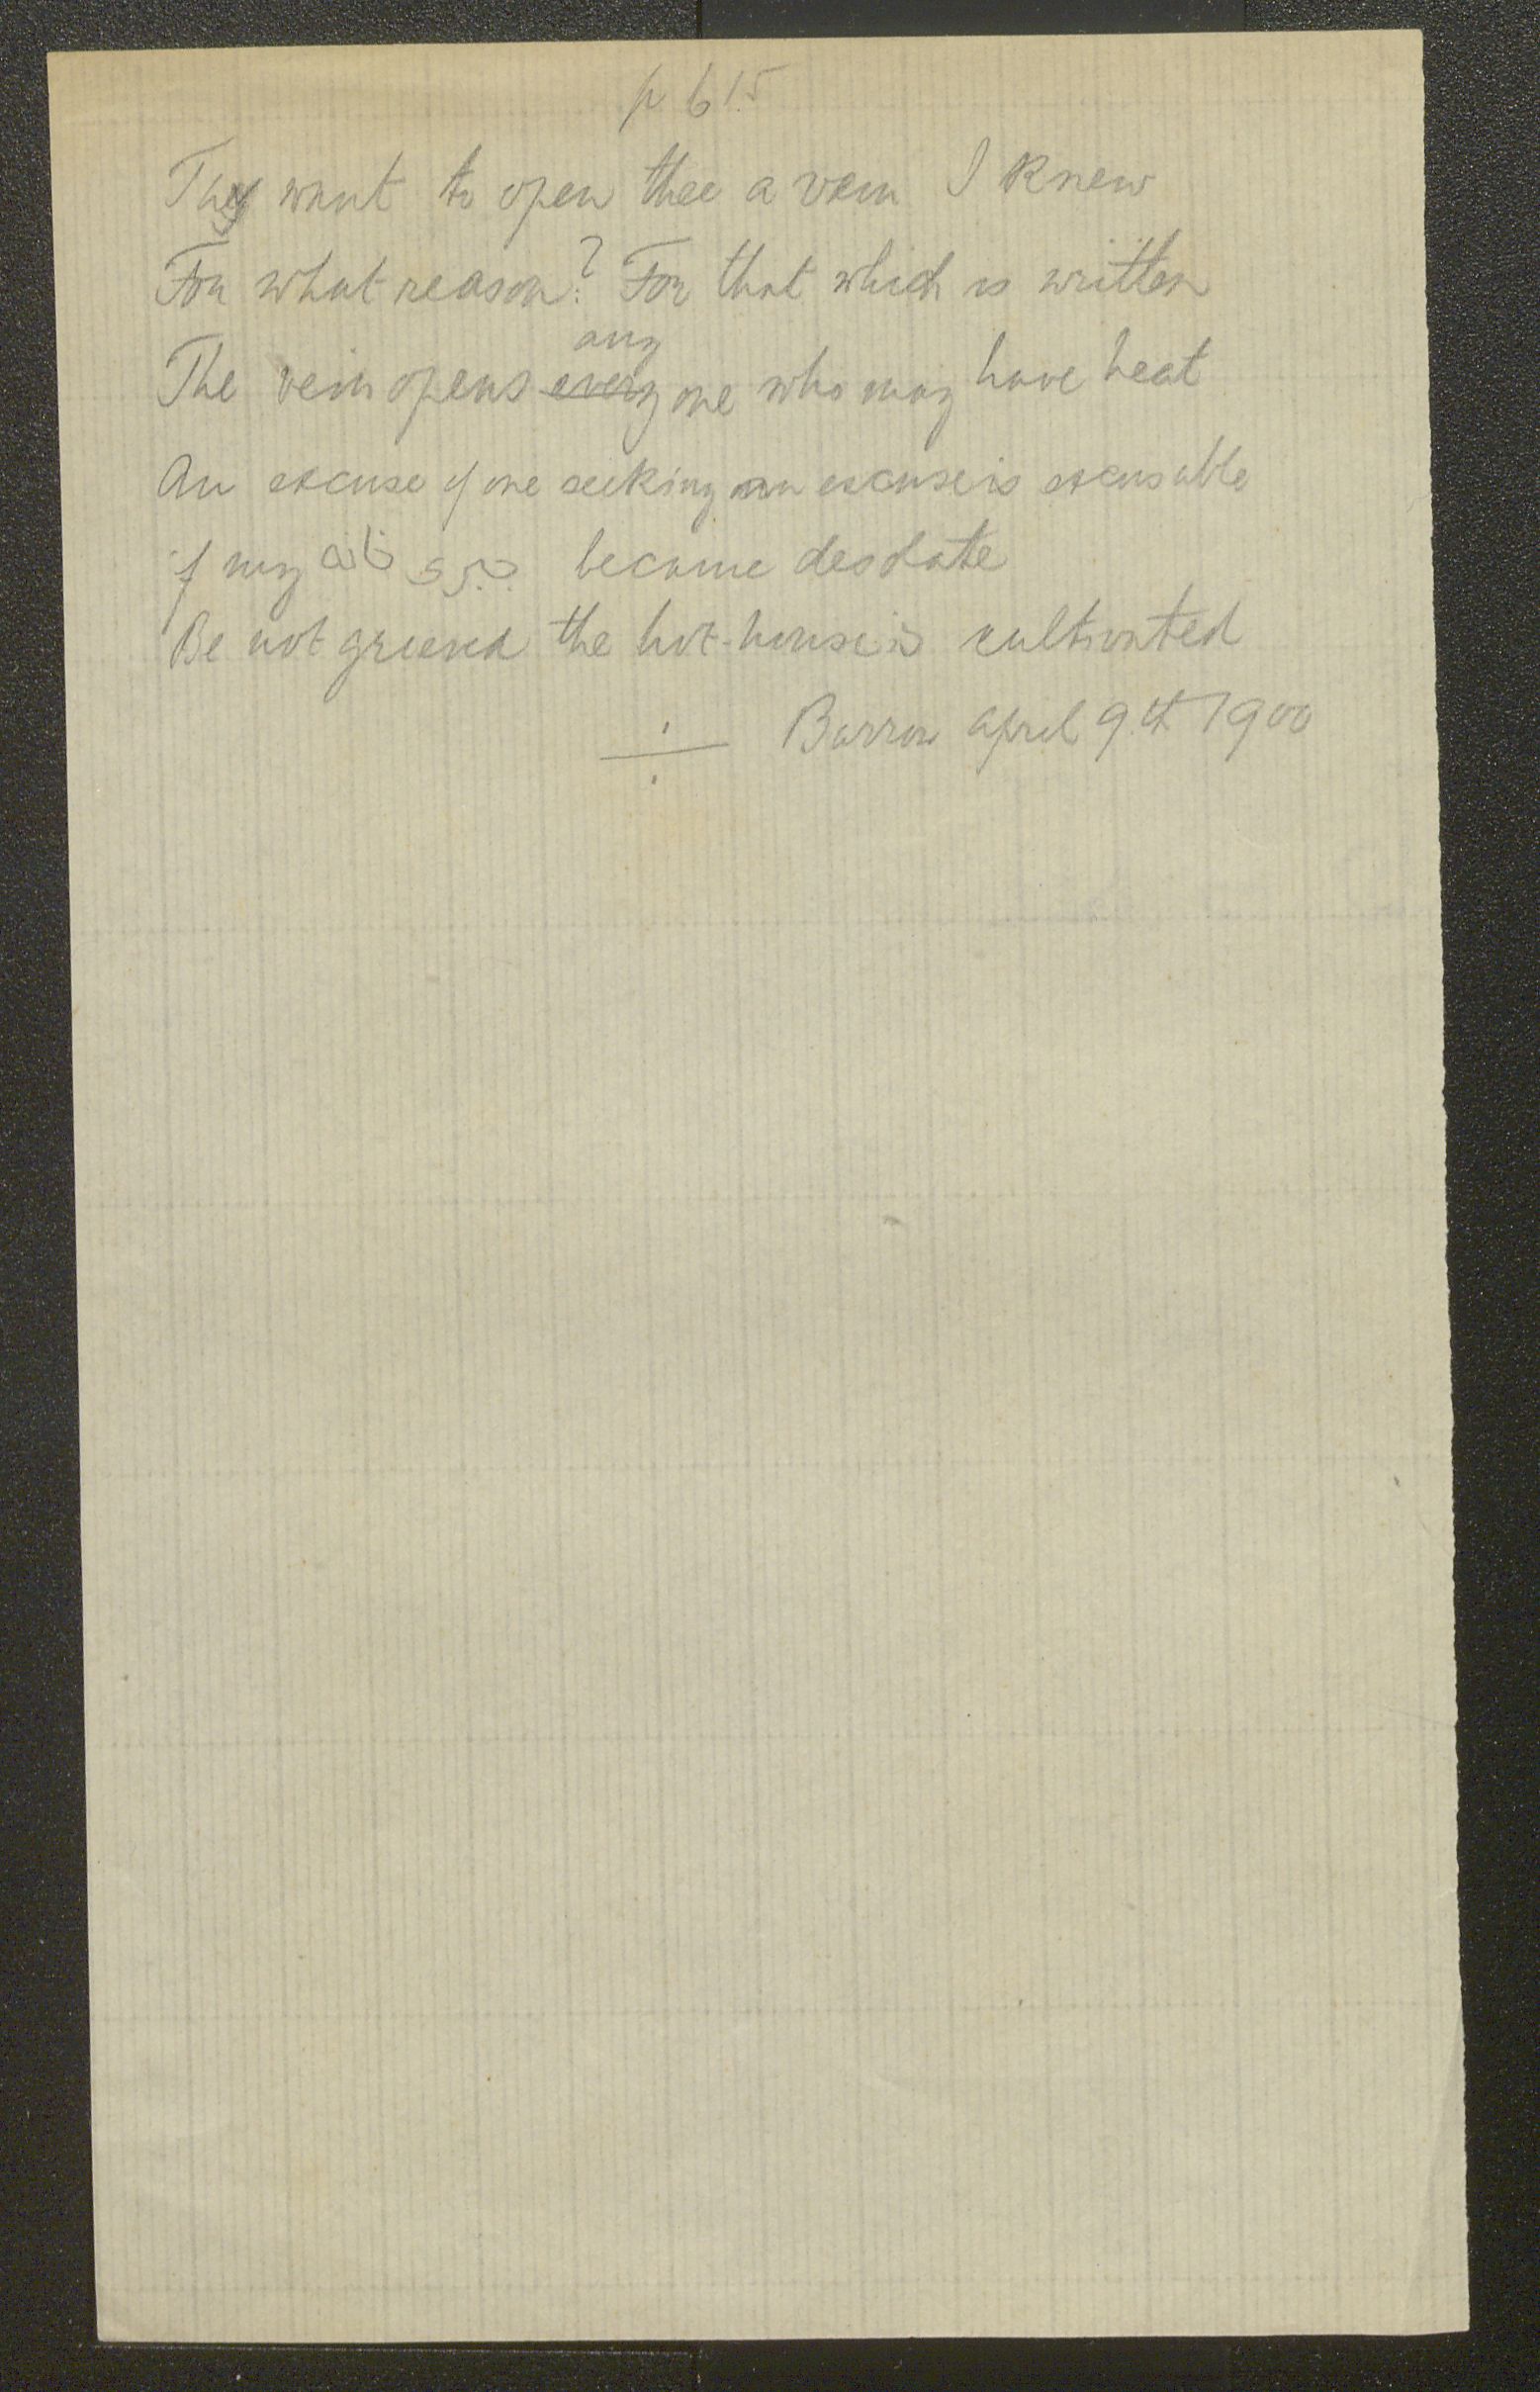 p 615
They want to open thee a vein I knew
For what reason? For that which is written
any
The vein opens every one who may have heat
An excuse of one seeking an excuse is excusable
if my خانه become desolate
Be not grieved the hot-house is cultivated
Barron april 9th 1900